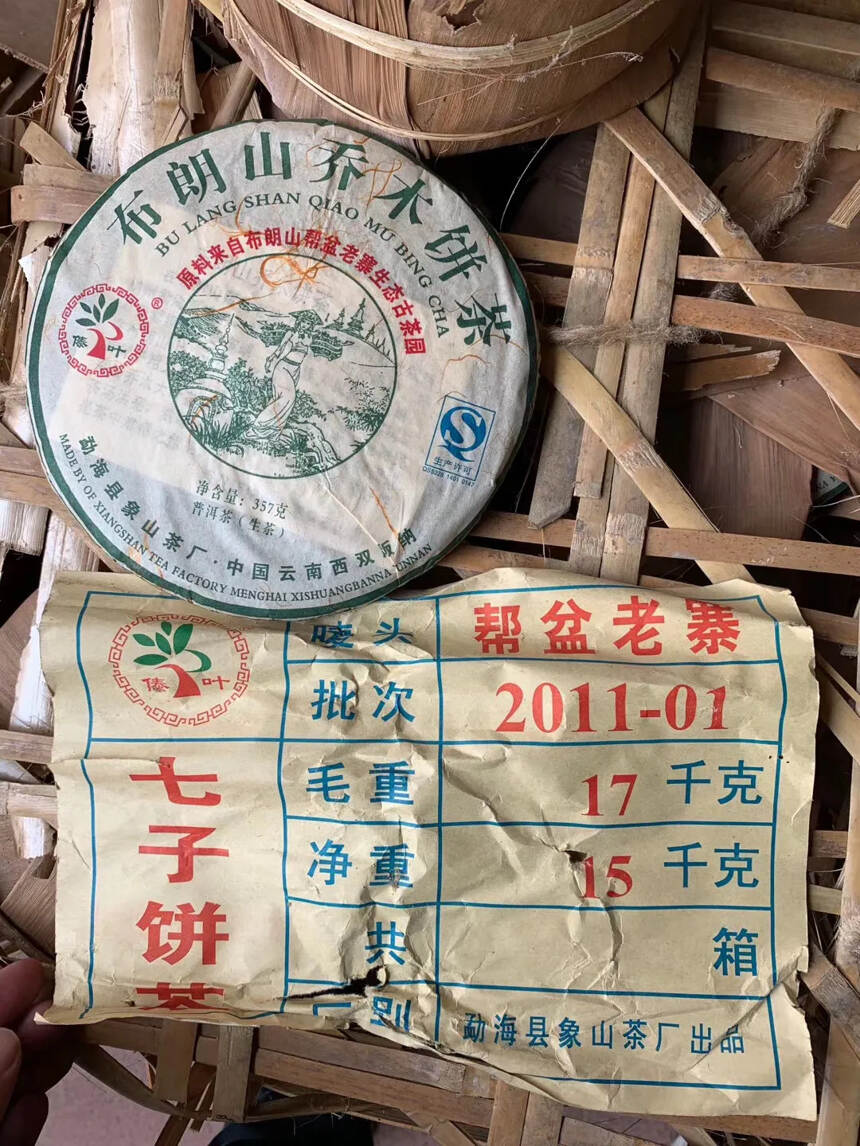 布朗山乔木饼茶
BU LANG SHAN QIAO MU BING CHA
原料来自布朗山帮盆老寨生态古茶园
傣叶
®
生产许可
QS5328 1401 0147
净含量：357克
普洱茶（生茶）
勐海县象山茶厂·中国云南西双版纳
MADE BY OF XIANGSHAN TEA FACTORY MENGHAI XISHUANGBANNA YUNNAN
傣叶
七子饼茶
唛头 帮盆老寨
批次 2011-01
毛重 17 千克
净重 15 千克
共 箱
勐海县象山茶厂出品